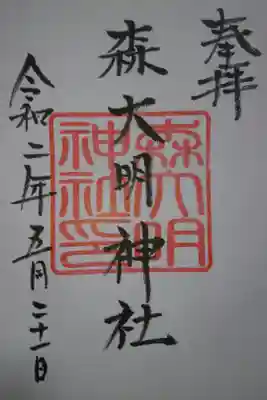 奉拝
森大明神社
森大明
神社印
令和二年五月二十一日